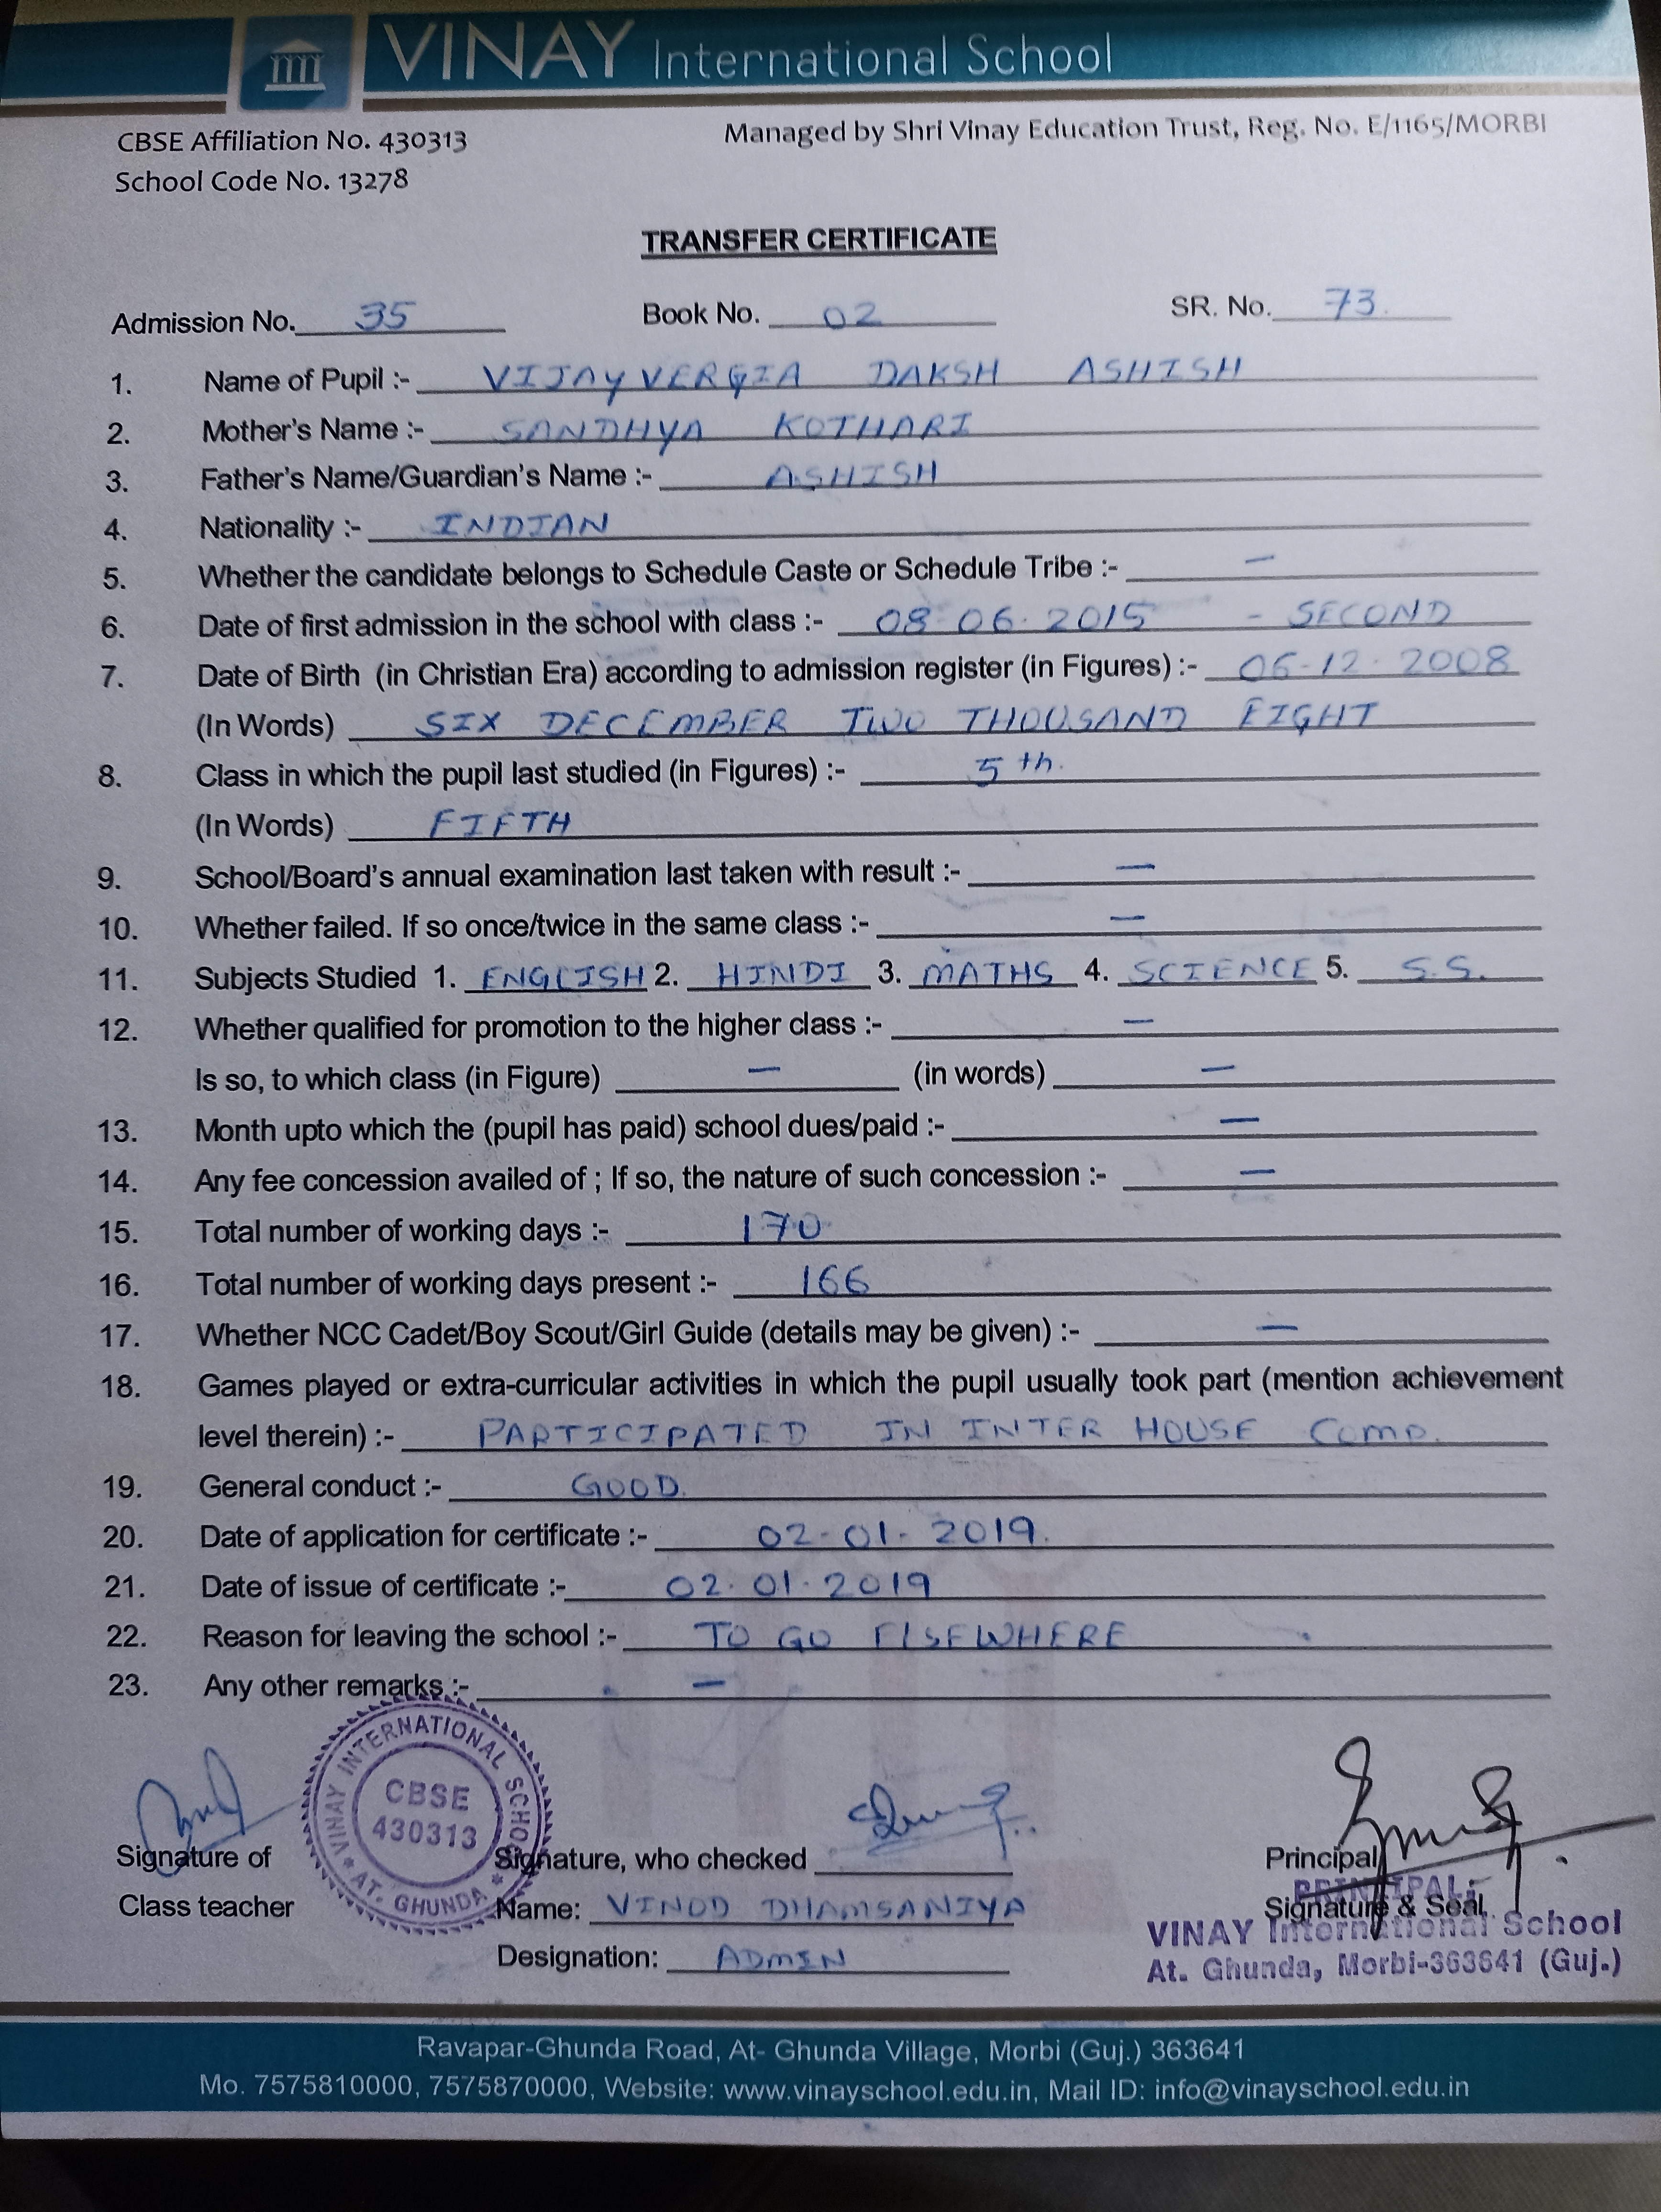 VINAY International School
CBSE Affiliation No. 430313
Managed by Shri Vinay Education Trust, Reg. No. E/1165/MORBI
School Code No. 13278
TRANSFER CERTIFICATE
Admission No. 35 Book No. 02 SR. No. 73.
1. Name of Pupil :- VIJAYVERGIA DAKSH ASHISH
2. Mother's Name :- SANDHYA KOTHARI
3. Father's Name/Guardian's Name :- ASHISH
4. Nationality :- INDIAN
5. Whether the candidate belongs to Schedule Caste or Schedule Tribe :- —
6. Date of first admission in the school with class :- 08-06-2015 - SECOND
7. Date of Birth (in Christian Era) according to admission register (in Figures) :- 06-12-2008
(In Words) SIX DECEMBER TWO THOUSAND EIGHT
8. Class in which the pupil last studied (in Figures) :- 5th.
(In Words) FIFTH
9. School/Board's annual examination last taken with result :- —
10. Whether failed. If so once/twice in the same class :- —
11. Subjects Studied 1. ENGLISH 2. HINDI 3. MATHS 4. SCIENCE 5. S.S.
12. Whether qualified for promotion to the higher class :- —
Is so, to which class (in Figure) — (in words) —
13. Month upto which the (pupil has paid) school dues/paid :- —
14. Any fee concession availed of ; If so, the nature of such concession :- —
15. Total number of working days :- 170
16. Total number of working days present :- 166
17. Whether NCC Cadet/Boy Scout/Girl Guide (details may be given) :- —
18. Games played or extra-curricular activities in which the pupil usually took part (mention achievement
level therein) :- PARTICIPATED IN INTER HOUSE COMP.
19. General conduct :- GOOD.
20. Date of application for certificate :- 02-01-2019.
21. Date of issue of certificate :- 02.01.2019
22. Reason for leaving the school :- TO GO ELSEWHERE
23. Any other remarks :- —
VINAY INTERNATIONAL SCHOOL
CBSE
430313
AT. GHUNDA
Signature of Signature, who checked Principal
PRINCIPAL
Class teacher Name: VINOD DHAMSANIYA Signature & Seal
VINAY International School
Designation: ADMIN At. Ghunda, Morbi-363641 (Guj.)
Ravapar-Ghunda Road, At- Ghunda Village, Morbi (Guj.) 363641
Mo. 7575810000, 7575870000, Website: www.vinayschool.edu.in, Mail ID: info@vinayschool.edu.in